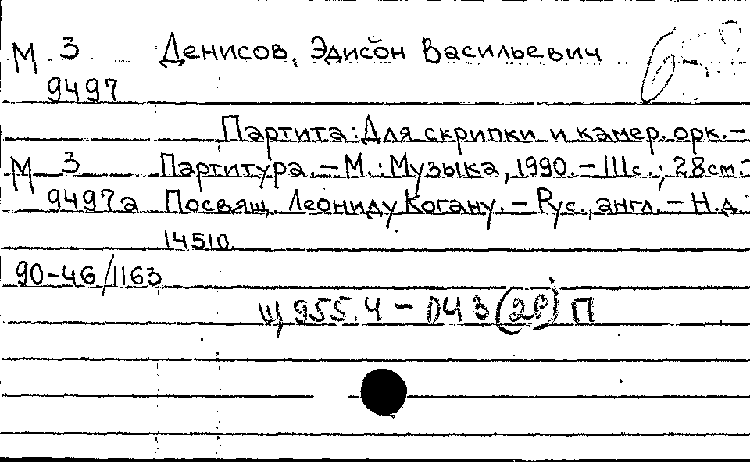 М 3 Денисов, Эдисон Васильевич
9497
Партита: Для скрипки и камер. орк. –
М 3 Партитура. – М.: Музыка, 1990. – 111 с.; 28 см. –
9497а Посвящ. Леониду Когану. – Рус., англ. – Н.д.
14510
90-46/1163
Щ 955.4 – 043 (2Р) П